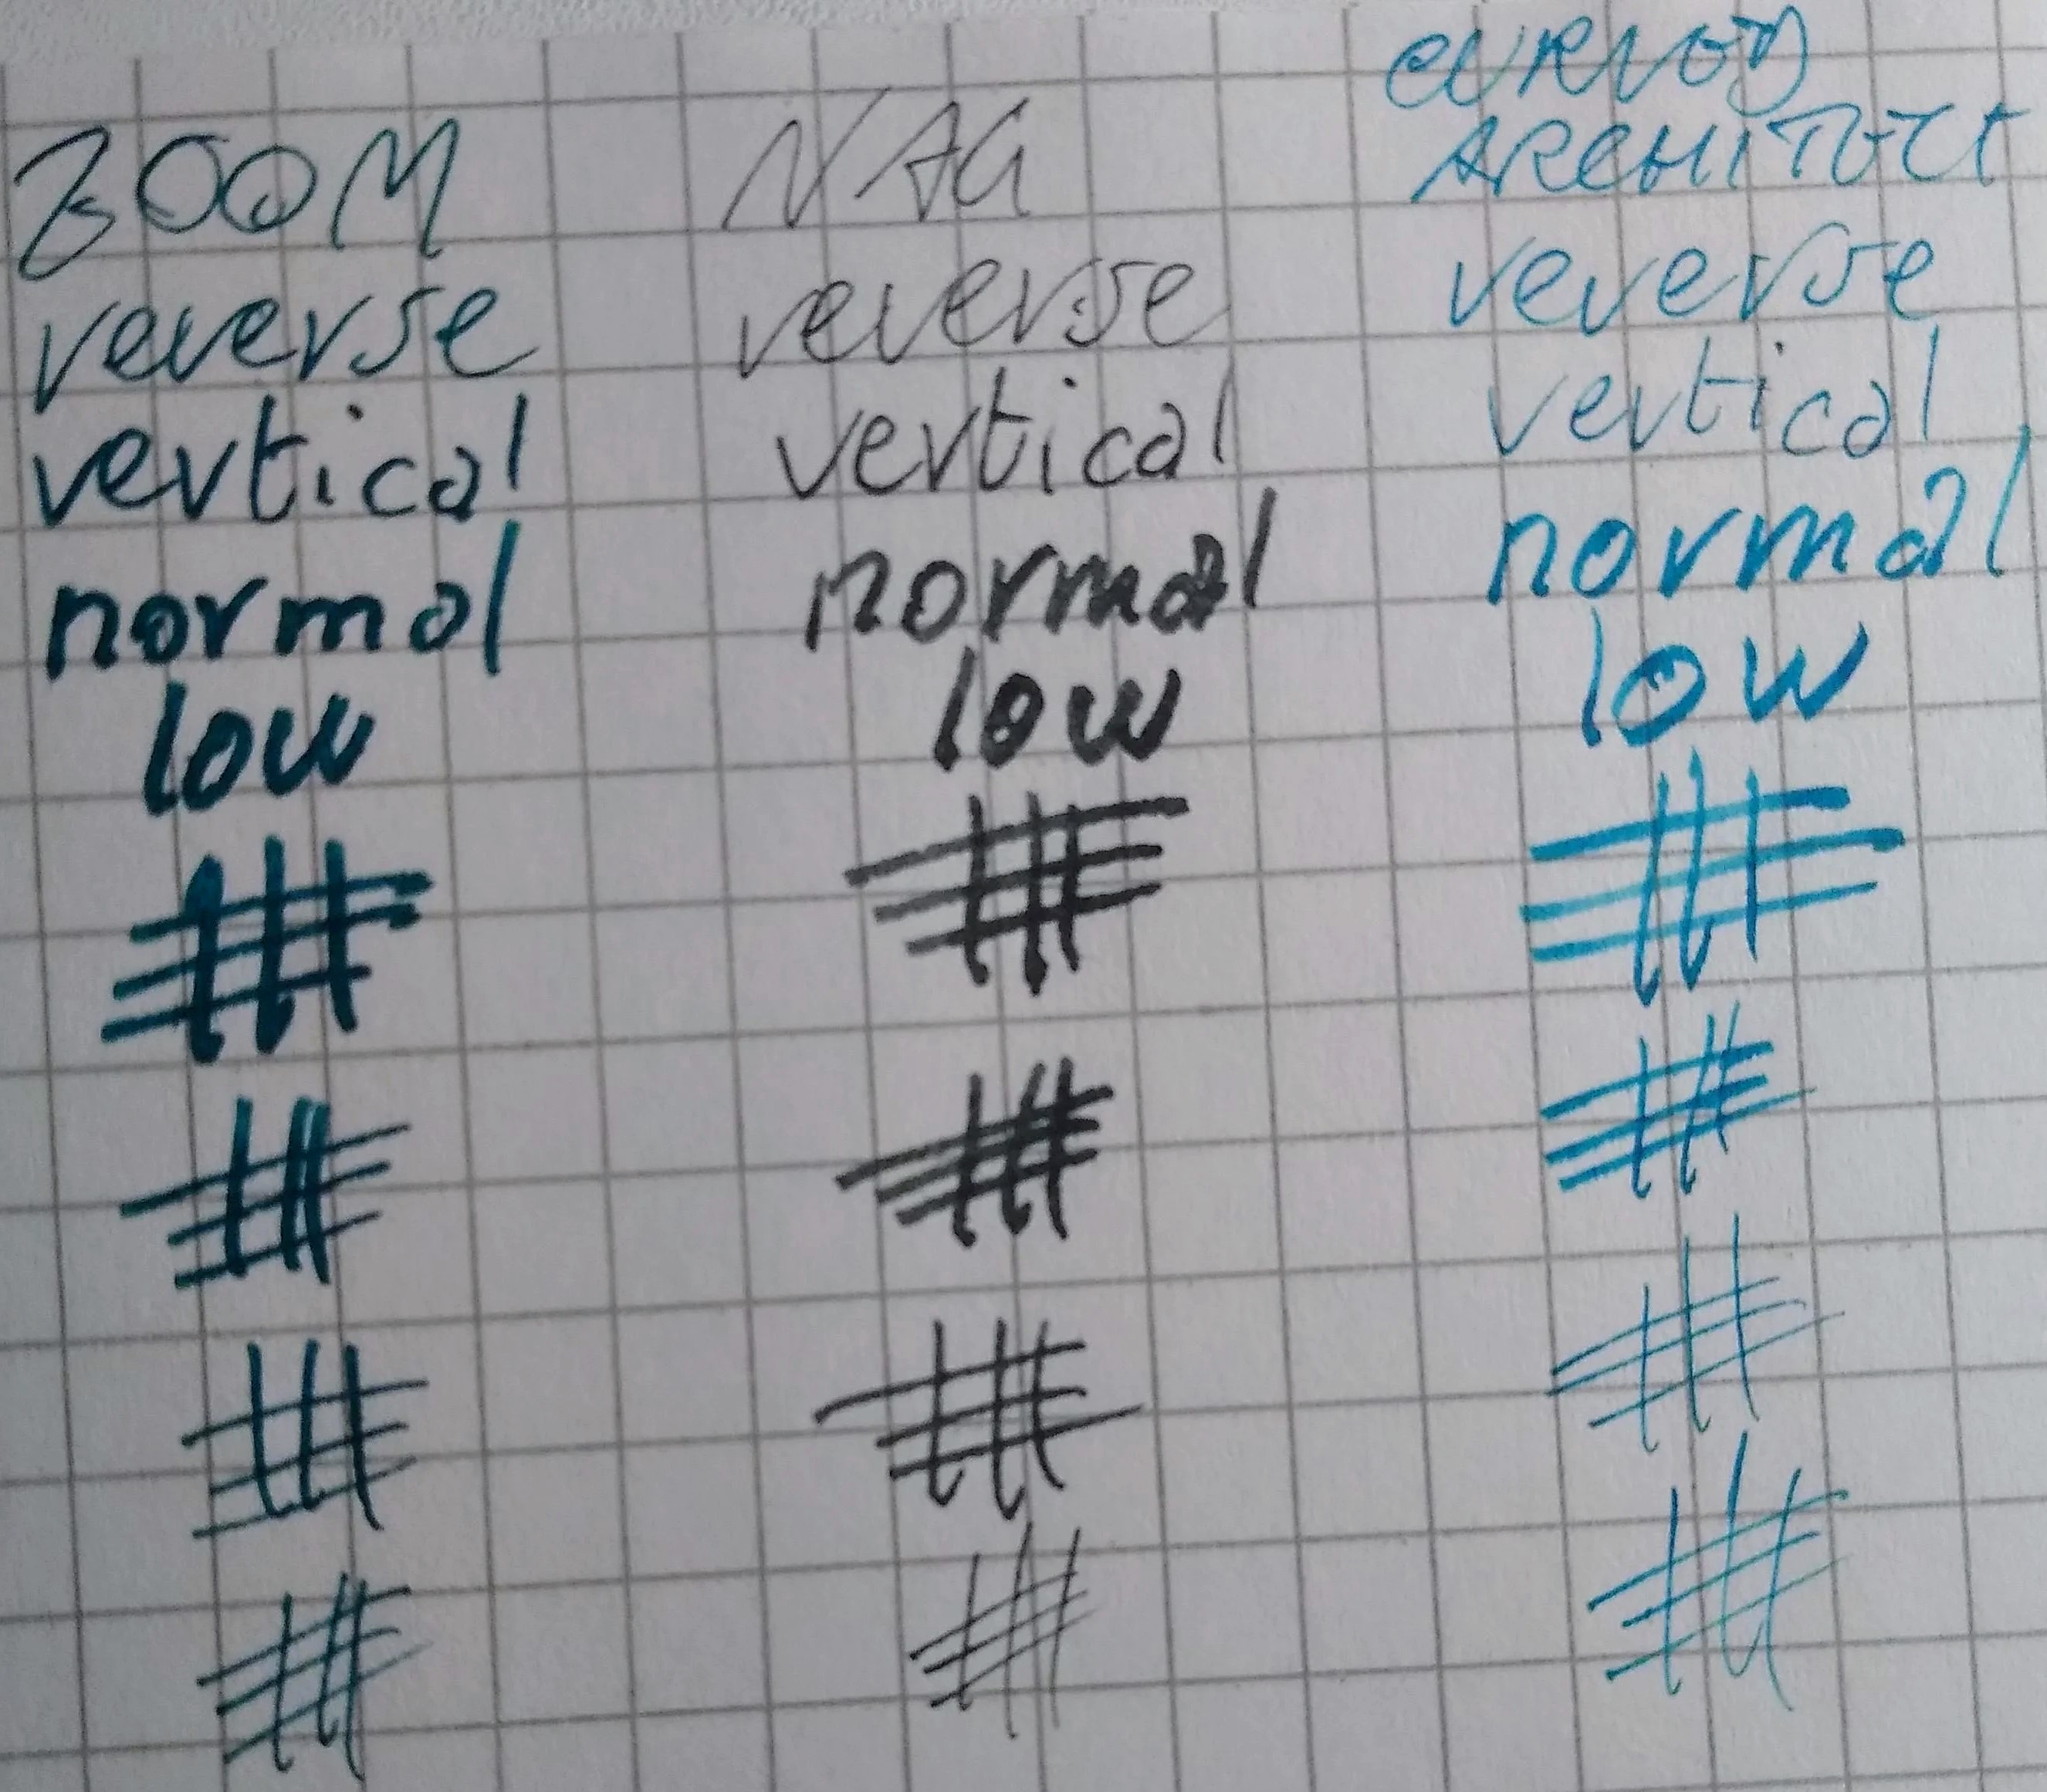 ZOOM
reverse
vertical
normal
low
NAG
reverse
vertical
normal
low
CURVED
ARCHITECT
reverse
vertical
normal
low